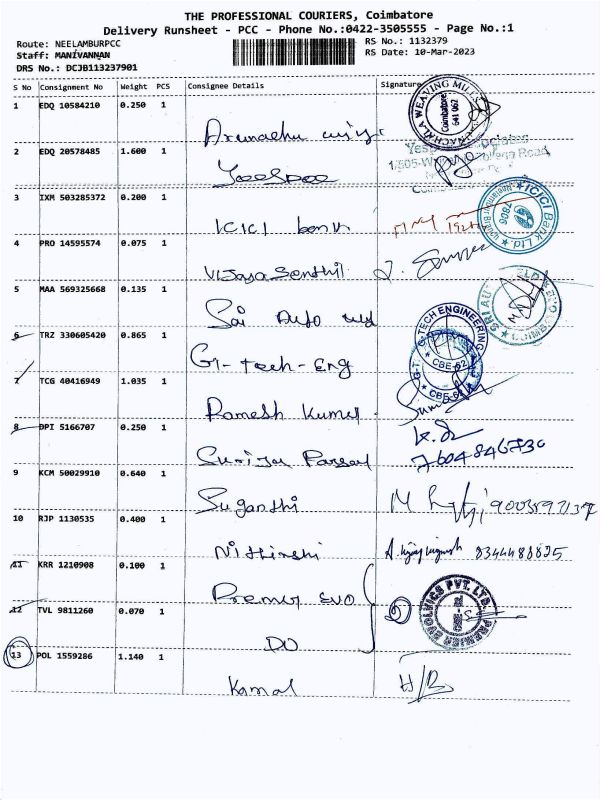 THE PROFESSIONAL COURIERS, Coimbatore
Delivery Runsheet - PCC - Phone No.:0422-3505555 - Page No.:1
Route: NEELAMBURPCC
RS No.: 1132379
Staff: MANIVANNAN
RS Date: 10-Mar-2023
DRS No.: DCJB113237901
S No Consignment No Weight PCS Consignee Details Signature
1 EDQ 10584210 0.250 1
WEAVING MILLS
Coimbatore
641 062
2 EDQ 20578485 1.600 1
3 IXM 503285372 0.200 1 ICICI bank
ICICI Bank Ltd.
7806
4 PRO 14595574 0.075 1 Vijaya Senthil
5 MAA 569325668 0.135 1 Sai Auto
SRI AU
COIMB
6 TRZ 330605420 0.865 1 G-tech-Eng
G-TECH ENGINEERING
CBE-62
7 TCG 40416949 1.035 1 Ramesh Kumar
8 DPI 5166707 0.250 1
7604846730
9 KCM 50029910 0.640 1 Suganthi
10 RJP 1130535 0.400 1 Nithinshi
8344488825
11 KRR 1210908 0.100 1 Premier Evo
PREMIER EVOLVICS PVT. LTD.
12 TVL 9811260 0.070 1 DO
13 POL 1559286 1.140 1 Kamal
H/B